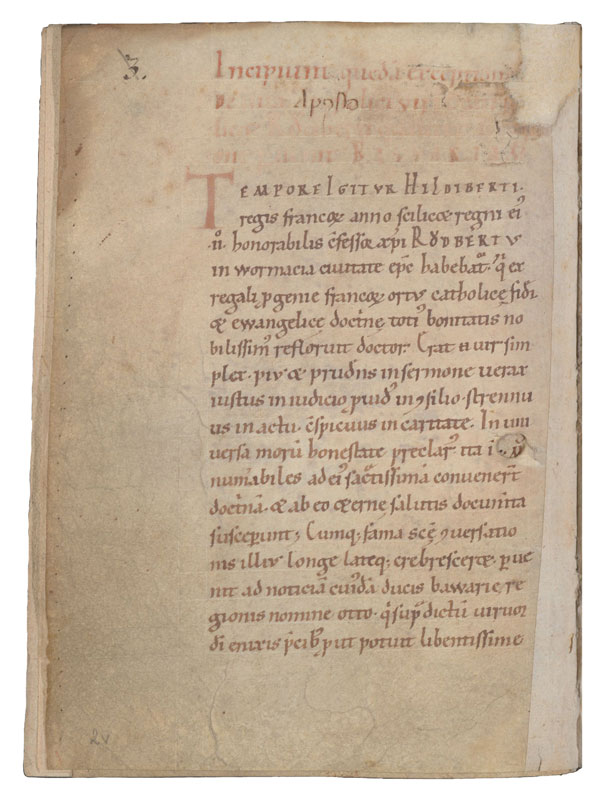 3.
Incipiunt quedā exceptiones
Aposto
TEMPORE IGITVR HILDIBERTI.
regis francoꝝ anno scilicꝫ regni ei᷒
.ıı. honorabilis c̄fessoꝝ æp̄i RŎDBERTVS
in wormacia ciuitate ep̄c habebat᷑. q̇ ex
regali ꝓgenie francoꝝ ortus catholicę fidei
& ewangelicę doctrinę toti᷒ bonitatis no
bilissim᷒ refloruit doctor. Erat n̄ uir sim
plex. pius & prudens in sermone uerax
iustus in iudicio prouid᷒ in ꝯsilio. strennu
us in actu. c̄spicuus in caritate. In uni
uersa morū honestate preclar᷒ ita
numabiles ad ei᷒ sac̄tissimā conuenerт̄
doctrinā. & ab eo æterne salutis documта
susceperunt; Cumq; fama scē ꝯuersatio
nis illius longe lateq; crebresceret. ꝑue
nit ad noticiā cui᷒dā ducis bawarię re
gionis nomine otto. q̇ sup̄dictū uirū uoꝝ
dī enixis p̄cib᷒ ꝓut potuit libentissime
2v